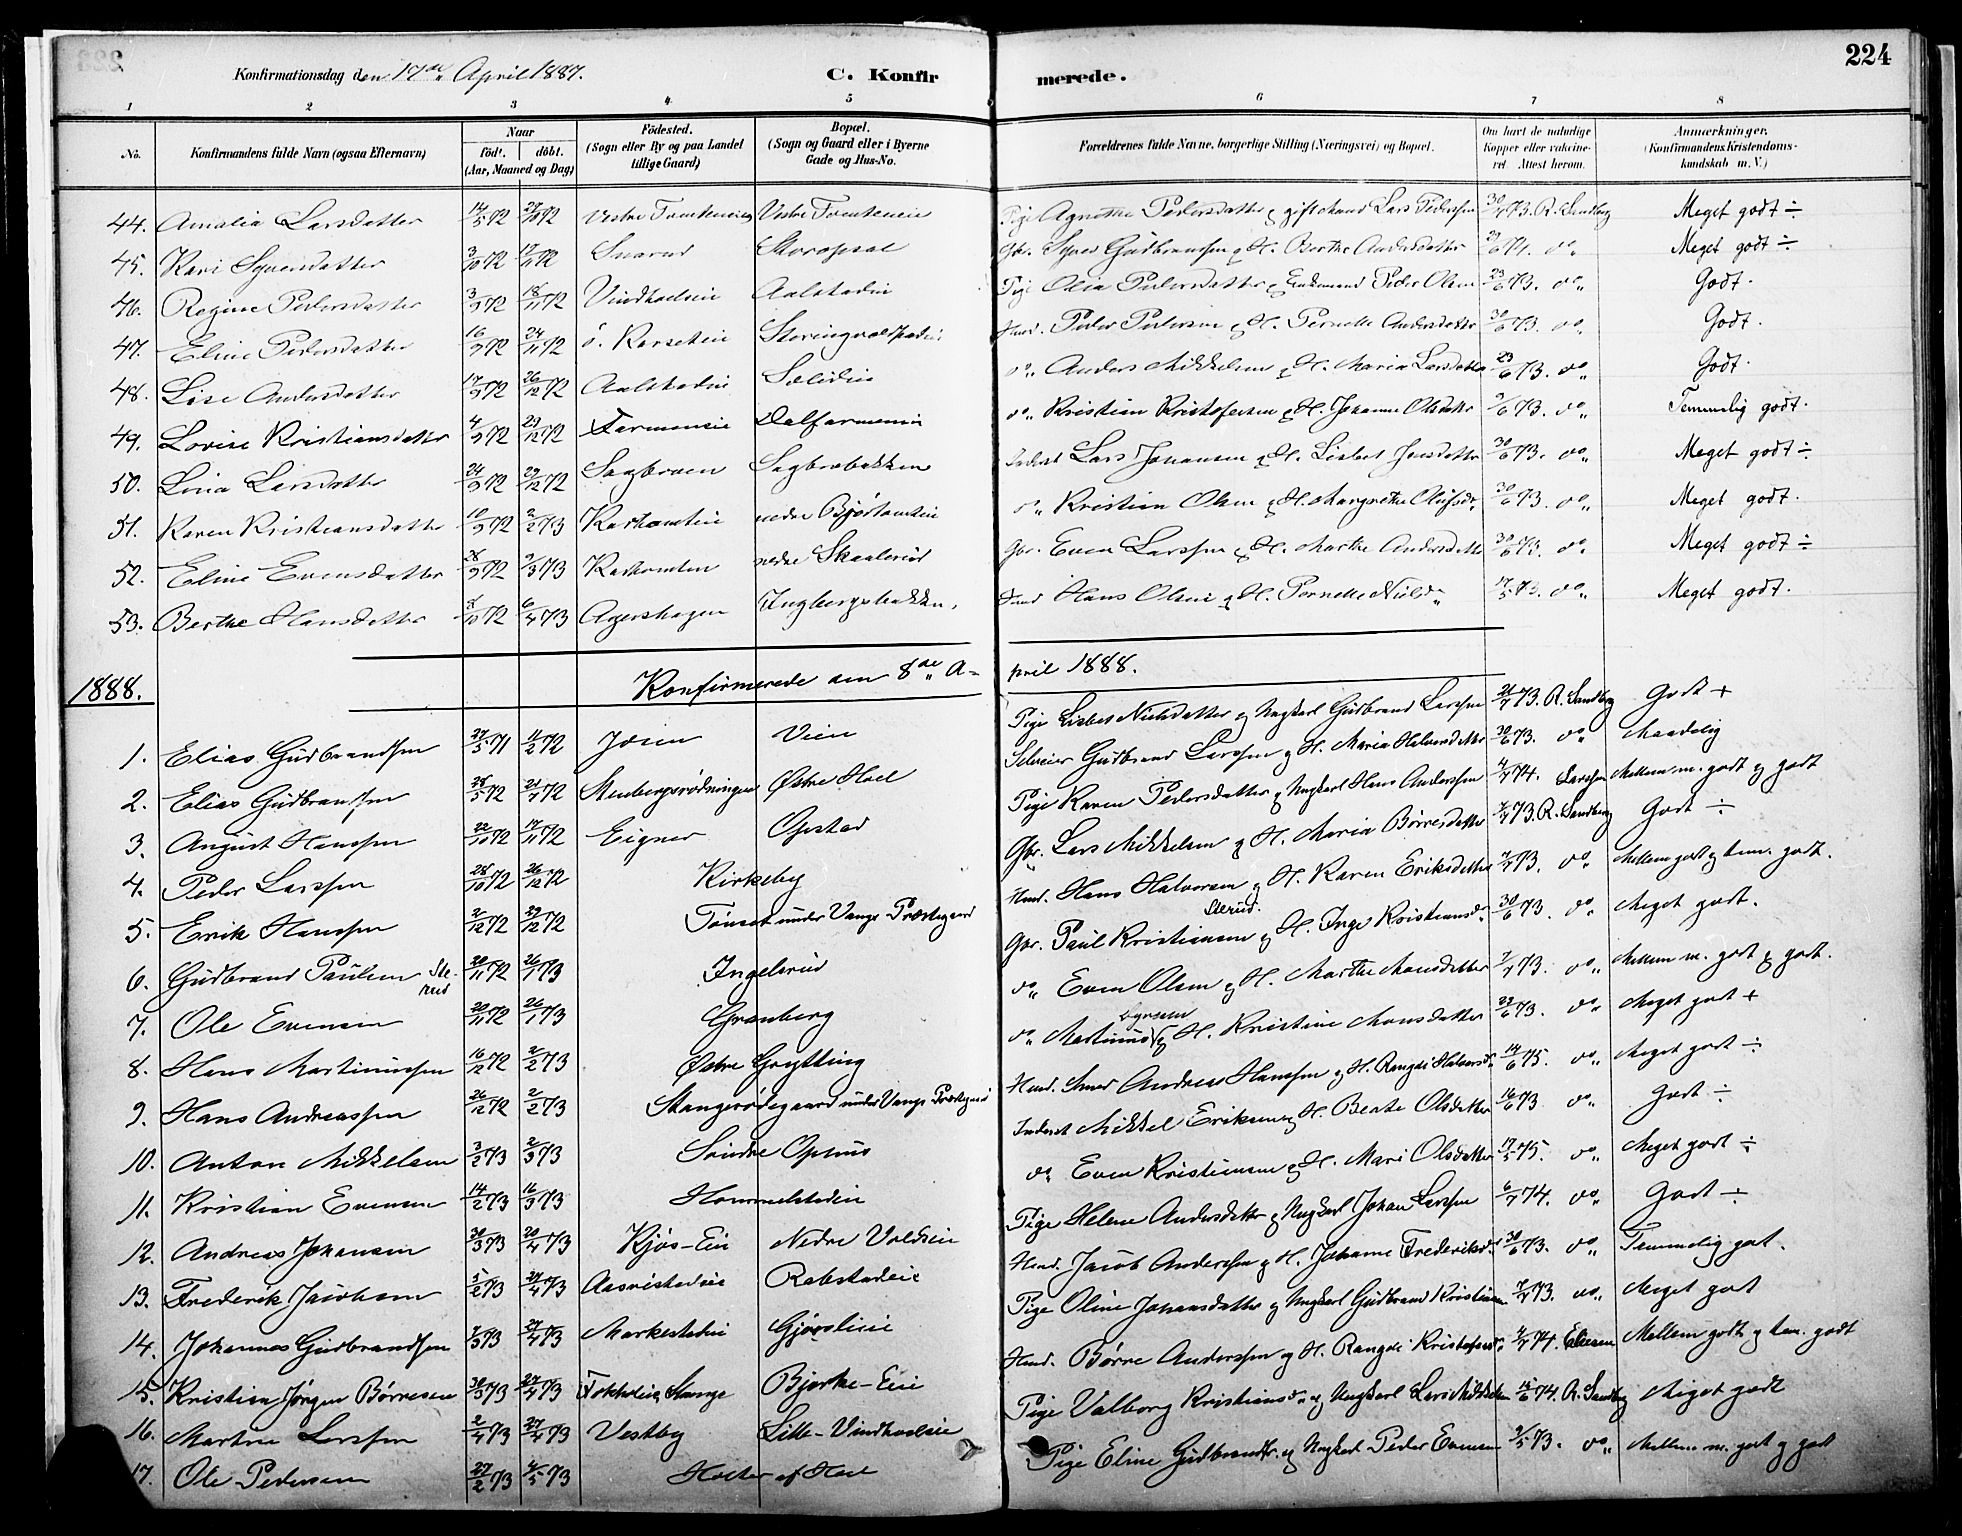 224
Konfirmationsdag den 17de April 1887.
C. Konfirmerede.
1 2 3 4 5 6 7 8
No.
Konfirmandens fulde Navn (ogsaa Efternavn)
Naar
født. døbt.
(Aar, Maaned og Dag)
Fødested.
(Sogn eller By og paa Landet tillige Gaard)
Bopæl.
(Sogn og Gaard eller i Byerne Gade og Hus-No.
Forældrenes fulde Navne, borgerlige Stilling (Næringsvei) og Bopæl.
Om havt de naturlige Kopper eller vakcineret. Attest herom.
Anmærkninger.
(Konfirmandens Kristendomskundskab m. V.)
44. Amalia Larsdatter 14/5 72 Vestre Vestre Pige Agnethe Pedersdatter & gift Mand Lars Pederssen 73. R. Sandberg Meget godt ÷
45. Kari Syversdatter 3/10 72 17/11 72 Snarud Gbr. Syver Gudbrandsen & H. Berthe Andersdatter do Meget godt ÷
46. Regine Pedersdatter 3/9 72 18/11 72 Pige Olia Pedersdatter & Enkemand Peder Olsen 23/6 73. do Godt.
47. Eline Pedersdatter 16/9 72 24/11 72 Husm. Peder Pedersen & H. Pernelle Andersdatter 30/6 73. do Godt.
48. Lise Andersdatter 17/9 72 26/12 72 do Anders Mikkelsen & H. Maria Larsdatter 23/6 73. do Godt.
49. Lovise Kristiansdatter 4/9 72 29/12 72 Farmeneie Dalfarmeneie do Kristian Kristofersen & H. Johanne Olsdatter 73. do Temmelig godt.
50. Lina Larsdatter 24/9 72 29/12 72 Sagbroen Sagbrobakken Inderst Lars Johansen & H. Lisbet Jensdatter 30/6 73. do Meget godt ÷
51. Karen Kristiansdatter 10/9 72 2/2 73 nedre do Kristian Olsen & H. Margrethe Olufsd. 30/6 73. do Meget godt.
52. Eline Evensdatter 28/9 72 2/3 73 nedre Skaalerud Gbr. Even Larssen & H. Marthe Andersdatter 30/6 73. do Meget godt ÷
53. Berthe Hansdatter 72 6/4 73 Agershagen Ingbergsbakken. Husm Hans Olsen & H. Pernelle Nielsd. 17/5 73. do Meget godt.
1888. Konfirmerede den 8de April 1888.
1. Elias Gudbrandsen 27/5 71 11/2 72 Vien Pige Lisbet Nielsdatter og Ungkarl Gudbrand Larssen 73. R. Sandberg Godt +
2. Elias Gudbrandsen 28/5 72 21/7 72 Østre Hoel Selveier Gudbrand Larssen og H. Maria Halvorsdatter 30/6 73. do Maadelig
3. August Hanssen 22/10 72 17/11 72 Eigner Opstad Pige Karen Pedersdatter og Ungkarl Hans Anderssen 74. Larssen Mellem m. godt og godt
4. Peder Larssen 28/10 72 26/12 72 Kirkeby Gbr. Lars Mikkelsen og H. Maria Børresdatter 73. R. Sandberg Godt ÷
5. Erik Hanssen 2/12 72 29/12 72 Tønset under Vangs Præstegaard Husm. Hans Halvorsen og H. Karen Eriksdatter 73. do Mellem godt og tem. godt.
6. Gudbrand Paulsen Slerud 20/11 72 26/1 73 Ingelsrud Gbr. Paul Kristiansen Slerud. og H. Inge Kristiansd. 30/6 73. do Meget godt.
7. Ole Evensen 20/11 72 26/1 73 Granberg do Even Olsen og H. Marthe Monsdatter 73. do Mellem m. godt og godt.
8. Hans Martinussen 16/12 72 2/2 73 Østre Grytting do Martinus Syvrsen og H. Kristine Monsdatter 23/6 73. do Meget godt +
9. Hans Andreassen 26/12 72 2/2 73 Stangerødegaard under Vangs Præstegaard Husm. Smed Andreas Hanssen og H. Rangdi Halvorsd. 14/6 75. do Meget godt ÷
10. Anton Mikkelsen 3/2 73 2/3 73 Søndre Ophus Inderst Mikkel Eriksen og H. Beate Olsdatter 16/6 73 do Godt ÷
11. Kristian Evensen 14/2 73 16/3 73 Hommelstadeie do Even Kristiansen og H. Mari Olsdatter 17/5 75. do Meget godt ÷
12. Andreas Johansen 30/3 73 20/4 73 Kjøs-Eie Nedre Voldeie Pige Helene Andersdatter og Ungkarl Johan Larssen 6/7 74. do Godt ÷
13. Frederik Jacobsen 5/2 73 27/4 73 Aasvistadeie Rabstadeie Husm. Jacob Anderssen og H. Johanne Frederiksd. 30/6 73. do Temmelig godt.
14. Johannes Gudbrandsen 73 27/4 73 Markestadeie Gjøvslieie Pige Oline Johansdatter og Ungkarl Gudbrand Kristiansen 73. do Meget godt
15. Kristian Jørgen Børresen 30/3 73 27/4 73 Stange Bjerke-Eie Husm. Børre Anderssen og H. Rangdi Kristofersd. 74. Mellem godt og tem. godt
16. Martin Larssen 2/4 73 27/4 73 Vestby Lille-Vindhooleie Pige Valborg Kristiansd. og Ungkarl Lars Mikkelsen 74. R. Sandberg Meget godt
17. Ole Pedersen 27/2 73 4/5 73 Holter af Hoel Pige Eline Gudbrandsd. og Ungkarl Peder Evensen 73. do Mellem m. godt og godt